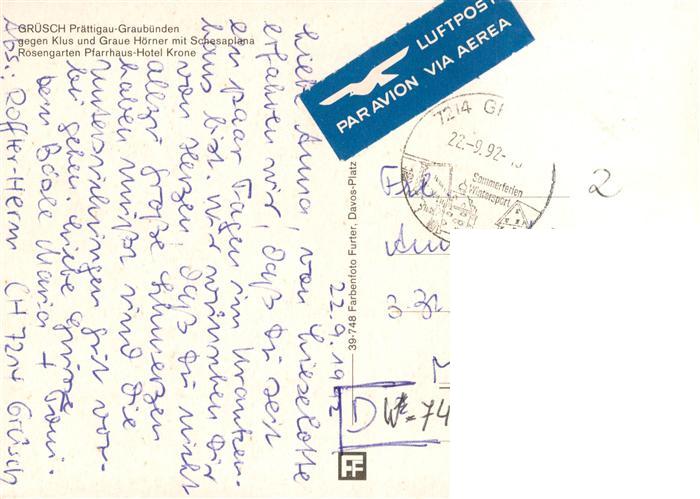 GRÜSCH Prättigau-Graubünden
gegen Klus und Graue Hörner mit Schesaplana
Rosengarten Pfarrhaus-Hotel Krone
22.9.1992
Liebe Anna, von Lieselotte
erfahren wir, daß Du seit
ein paar Tagen im Kranken-
haus bist. Wir wünschen Dir
von Herzen, daß Du nicht
allzu große Schmerzen
haben mußt und die
Untersuchungen gut vor-
bei gehen. Liebe Grüsse
dein Bäsle Maria + Toni
Abs: Roffler-Herm CH 7214 Grüsch
39-748 Farbenfoto Furter, Davos-Platz
LUFTPOST
PAR AVION VIA AEREA
7214 G
22.-9.92-
Sommerferien
Wintersport
2
D W-74
FF